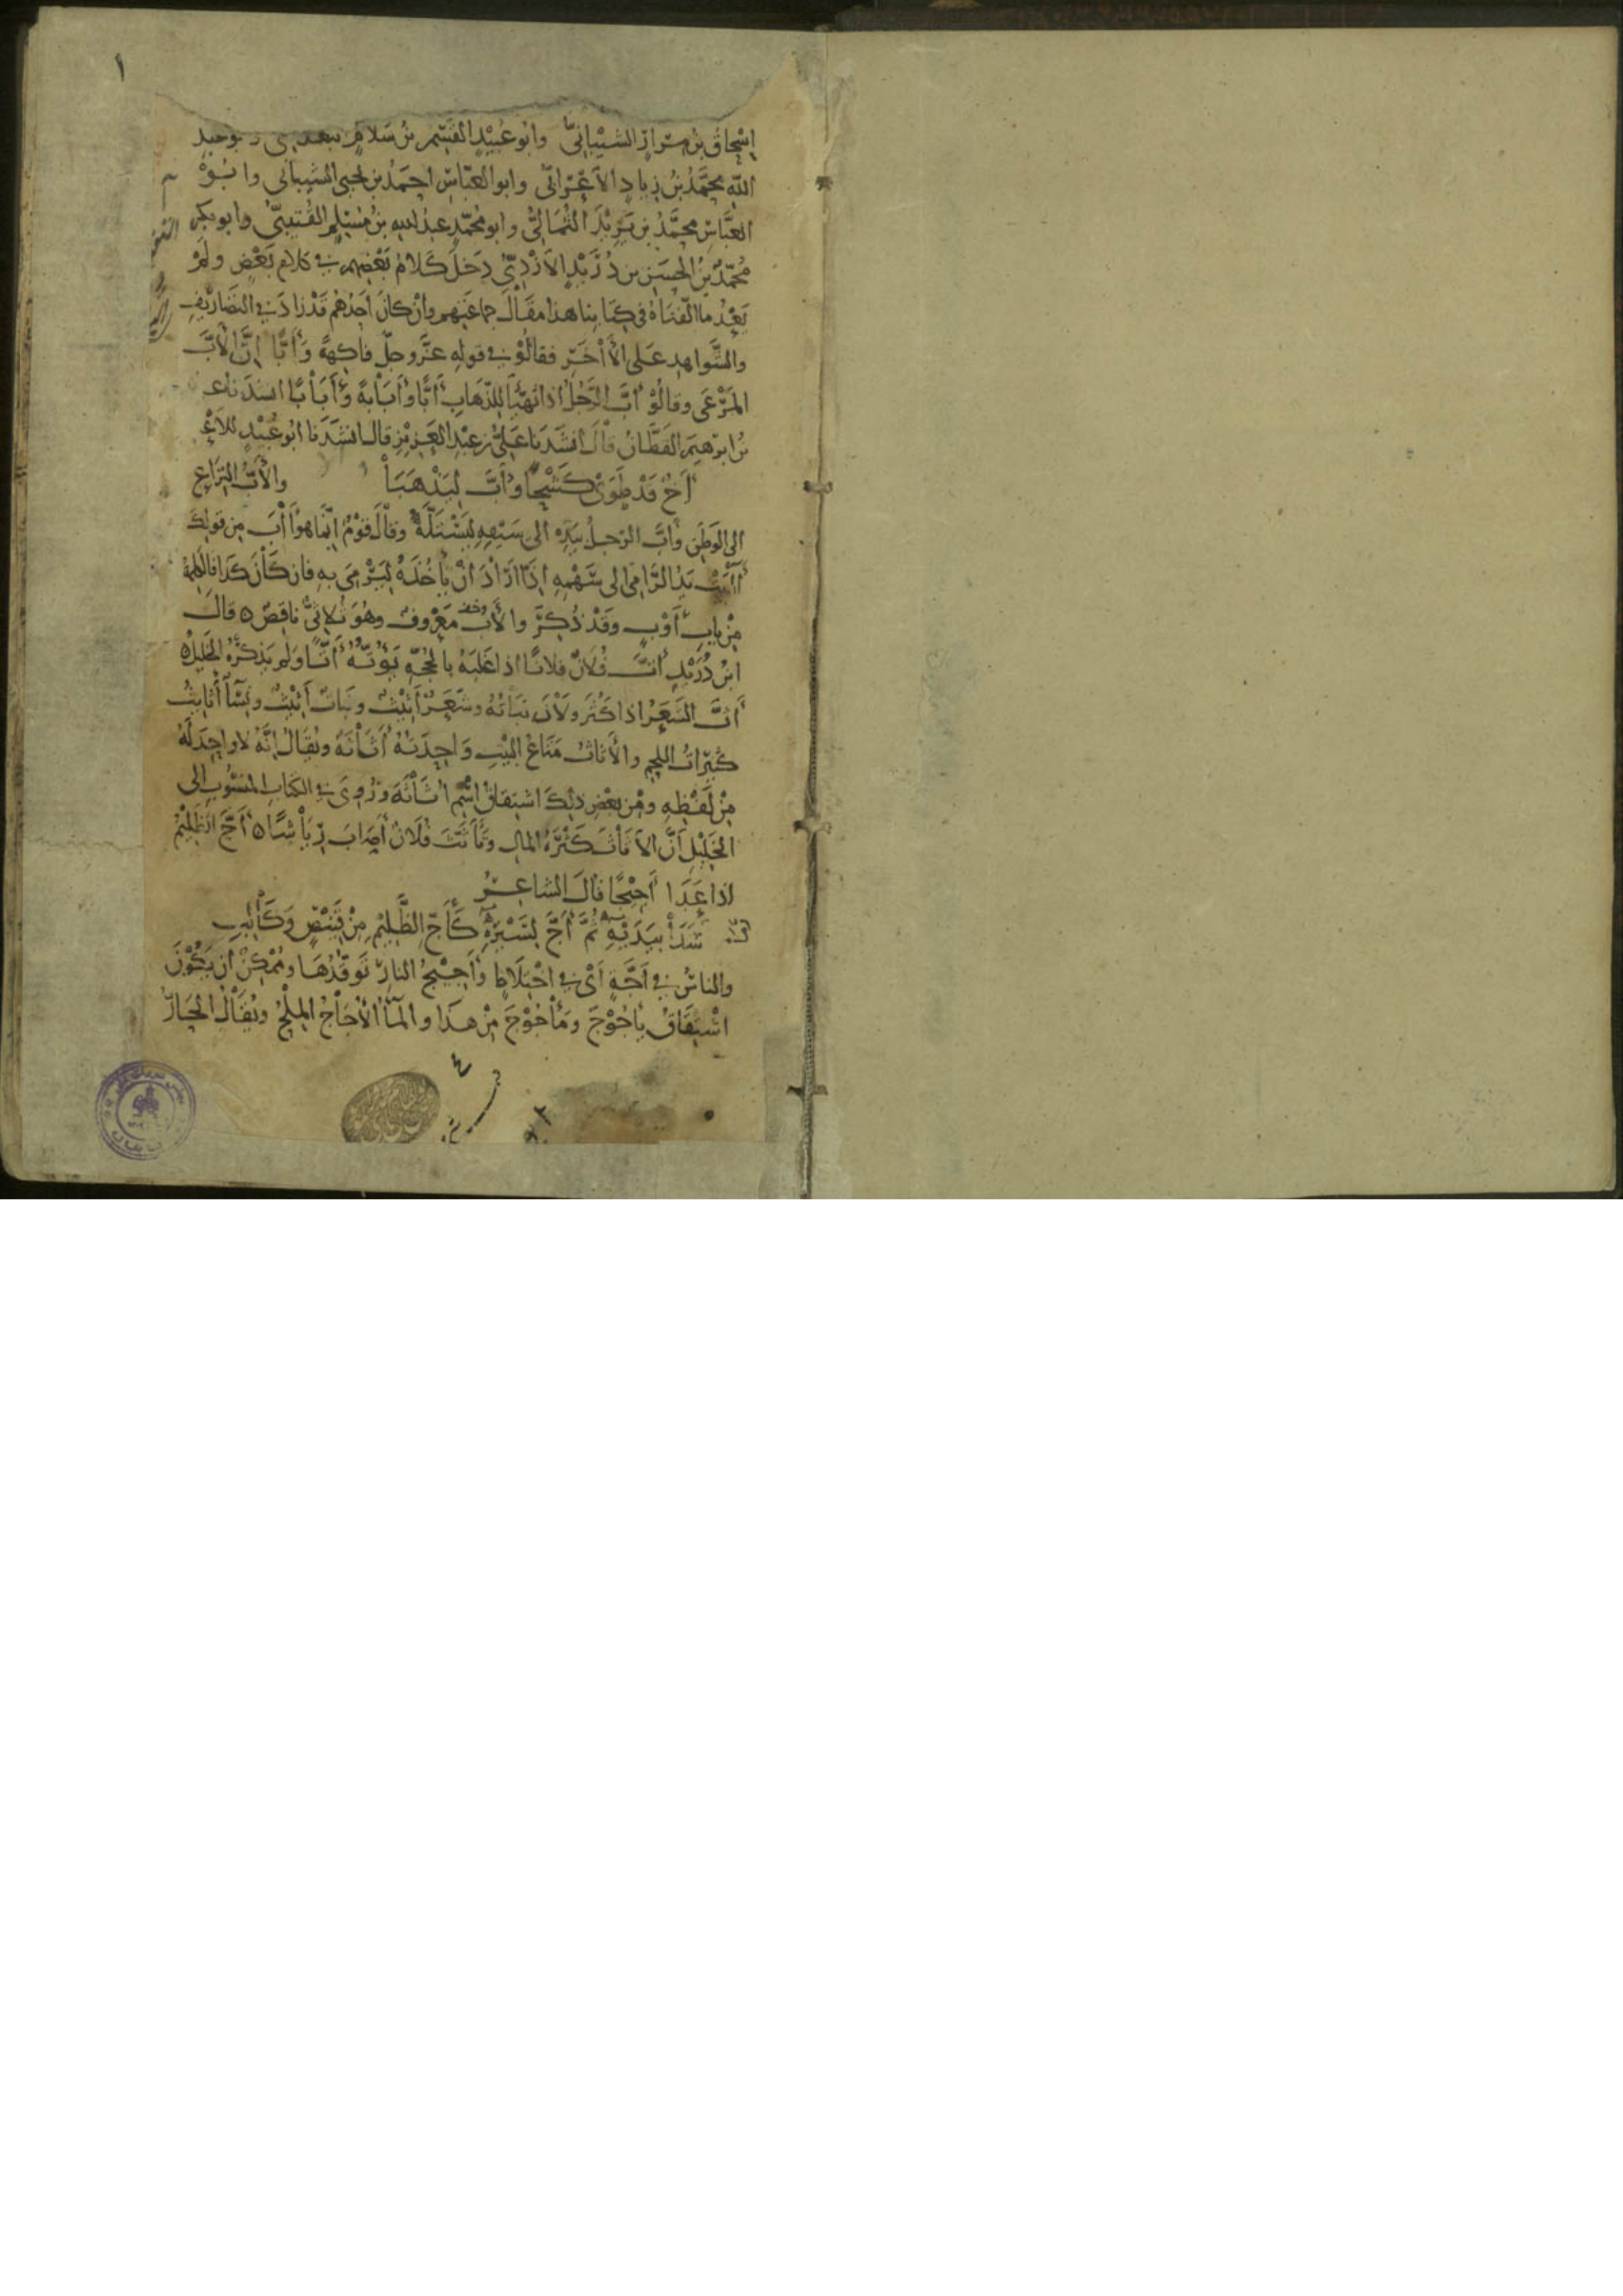 ١
اِسْحاقُ بنُ مِرارٍ الشَّيْبانِيُّ وابُو عُبَيْدٍ القَسِمُ بنُ سَلامٍ
اللهِ مُحَمَّدُ بنُ زِيادٍ الأعْرابِيُّ وابو العَبّاسِ احمَدُ بن يحيى الشيبانى وابُوْ
العَبَّاسِ محمَّدُ بن يَزِيْدَ الثُمَالِىُّ وابو مُحمّدٍ عبدُ اللهِ بنُ مُسْلِمٍ القُتَيبِيُّ وابو بكرٍ
مُحمّدُ بنُ الحسَنِ بن دُرَيْدٍ الازْدِيّ دَخلَ كَلامُ بَعْضِهِم فى كلامِ بَعْضٍ ولَمْ
يَعْدُ ما الّفْنَاهُ فى كِتَابِنا هذا مقَالَ جماعَتِهِم وانْ كانَ احَدُهُم قَدْ زادَ فى التصَارِيْفِ
والشَّواهِدِ عَلى الأَخَرِ فقالُوْ فى قولِهِ عزَّ وجلّ فاكِهةً وَأَبًّا اِنَّ الأَبَّ
المَرْعَى وقالُوْ أَبَّ الرَّجُلُ اذا تَهَيَّأَ للذّهابِ أَبًّا وَأَبَابَةً وَأَبَابًا انشدَنا على
بنُ ابرهِيمَ القَطَّانُ قالَ أنشَدَنا عَلىُّ بن عبْدِ العَزِيْزِ قال انشَدَنا ابُو عُبَيْدٍ للأَعْ
أَخٌ قَدْ طَوَى كَشْحًا وأَبَّ لِيَذْهَبَا والأَبُّ النِزَاعُ
الى الوَطَنِ وأَبَّ الرّجلُ بيَدِه الى سَيْفِهِ ليَسْتَلَّهُ وقالَ قَوْمٌ انّما هو أَبَ من قولِكَ
أَابَتْ يَدُ الرَّامِى الى سَهْمِهِ اِذَا ارَادَ انْ يأْخُذَهُ لِيَرْمِىَ بِهِ فان كانَ كَذا فالكلمةُ
مِنْ بابِ أَوْبٍ وَقَدْ ذُكِرَ والأَبُ مَعْروفٌ وهُوَ ثُلاثِىٌّ ناقِصٌ ه قالَ
ابنُ دُرَيْدٍ أَتَّ فُلانٌ فلانًا اذا غَلَبَهُ بالحُجّةِ يَؤُتُّهُ أَتًّا وَلَم يَذكُرْهُ الخَليْلُ ه
أَثَّ الشَعَرُ اذا كَثُرَ ولاَنَ نبَاتُهُ وشَعَرٌ أَثِيْثٌ ونَباتٌ أَثِيْثٌ ونِسَآءٌ أَثايِثُ
كثيراتُ اللحمِ والأَثاثُ مَتَاعُ البَيْتِ وَاحِدَتُهُ أَثَاثَةٌ ويُقَالُ اِنَّهُ لا واحِدَ لَهُ
مِنْ لَفْظِهِ ومِن بعْضِ ذلِكَ اشتِقاقُ اسْمِ اُثَاثَةَ ورُوِىَ فى الكتابِ المَنسُوبِ الى
الخَلِيْلِ أَنَّ الاَثاثَ كَثْرَةُ المالِ وتَأَثَّثَ فُلانٌ أَصابَ رِيَاشًا ه أَجَّ الظَلِيْمُ
اذا عَدَا أَجِيْجًا قالَ الشاعِرُ
سَدَا بِيَدَيْهِ ثُمَّ أَجَّ بِسَيْرِهِ كَأَجِّ الظَّلِيْمِ مِنْ قَنِيْصٍ وَكَالِبِ
والناسُ فى أَجَّةٍ أَىْ فى اخْتِلاطٍ وأَجِيْجُ النارِ تَوَقُّدُهَا ومُمْكِنٌ ان يَكُوْنَ
اشْتِقاقُ يأْجُوْجَ ومَأْجُوْجَ مِنْ هَذا والمآءُ الأُجَاجُ المِلْحُ ويُقالُ الحارُّ